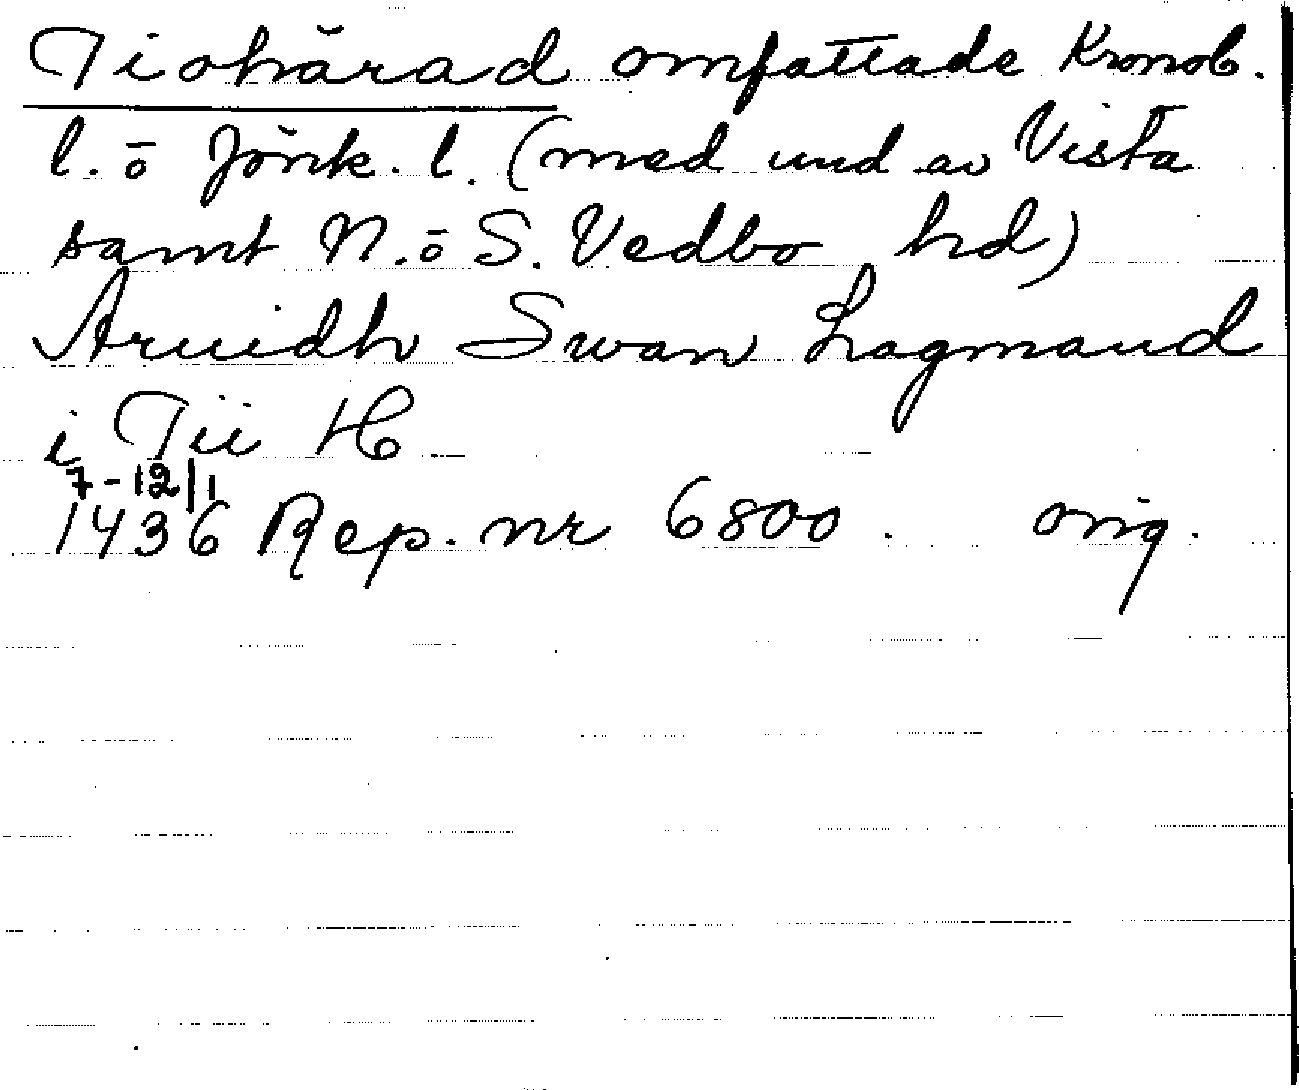 Tiohärad omfattade Kronob.
l. o Jönk. l. (med und av Vista
samt N. o S. Vedbo hd)
Aruidh Swan Lagmand
i Tii H
7-12/1
1436 Rep. nr 6800. orig.